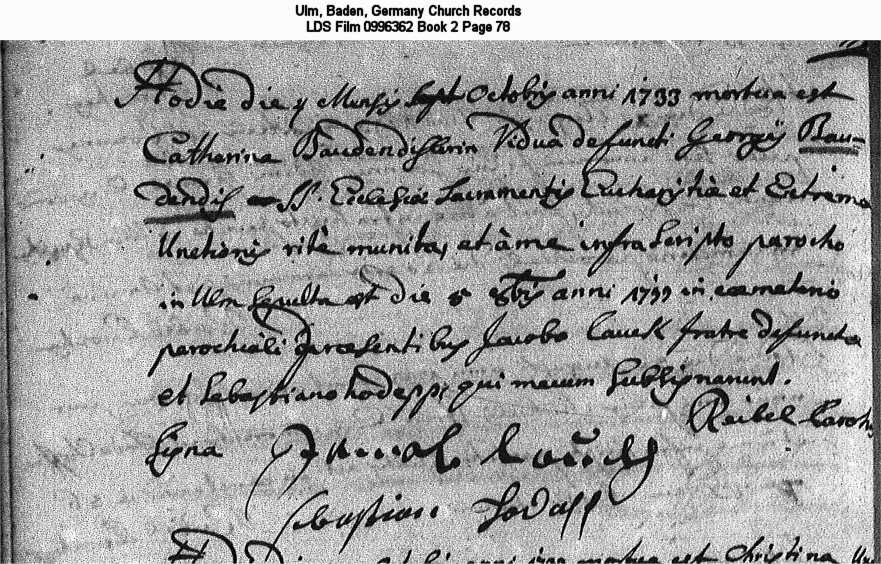 Ulm, Baden, Germany Church Records
LDS Film 0996362 Book 2 Page 78
Hodie die 7 Mensis Sept Octobris anni 1733 mortua est
Catharina Baudendistlerin Vidua defuncti Georgij Bau-
dendis SS. Ecclesiae Sacramentis Eucharistiae et Extrema
Unctionis ritè munita, et à me infra scripto parocho
in Ulm sepulta est die 8 8bris anni 1733 in coemeterio
parochiali praesentibus Jacobo Lauck fratre defuncta
et Sebastiano hodepp qui mecum subsignarunt.
Reibel Paroch
Signa
sebastian hodapp
anni 1733 mortua est Christina